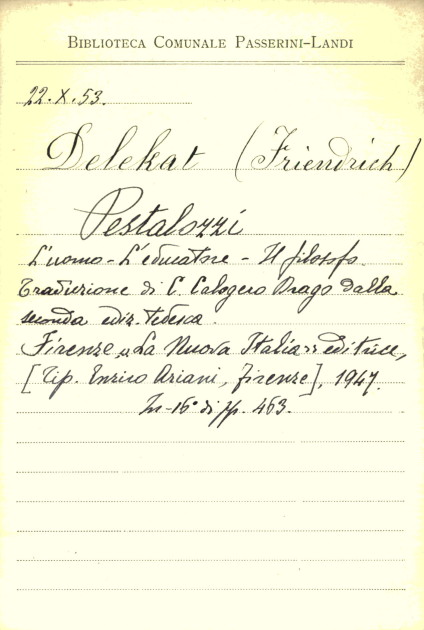 BIBLIOTECA COMUNALE PASSERINI-LANDI
22.X.53.
Delekat (Friendrich)
Pestalozzi
L'uomo - L'educatore - Il filosofo.
Traduzione di C. Calogero Drago dalla
seconda ediz. tedesca.
Firenze, "La Nuova Italia" editrice,
[Tip. Enrico Ariani, Firenze], 1947.
In-16° di pp. 463.